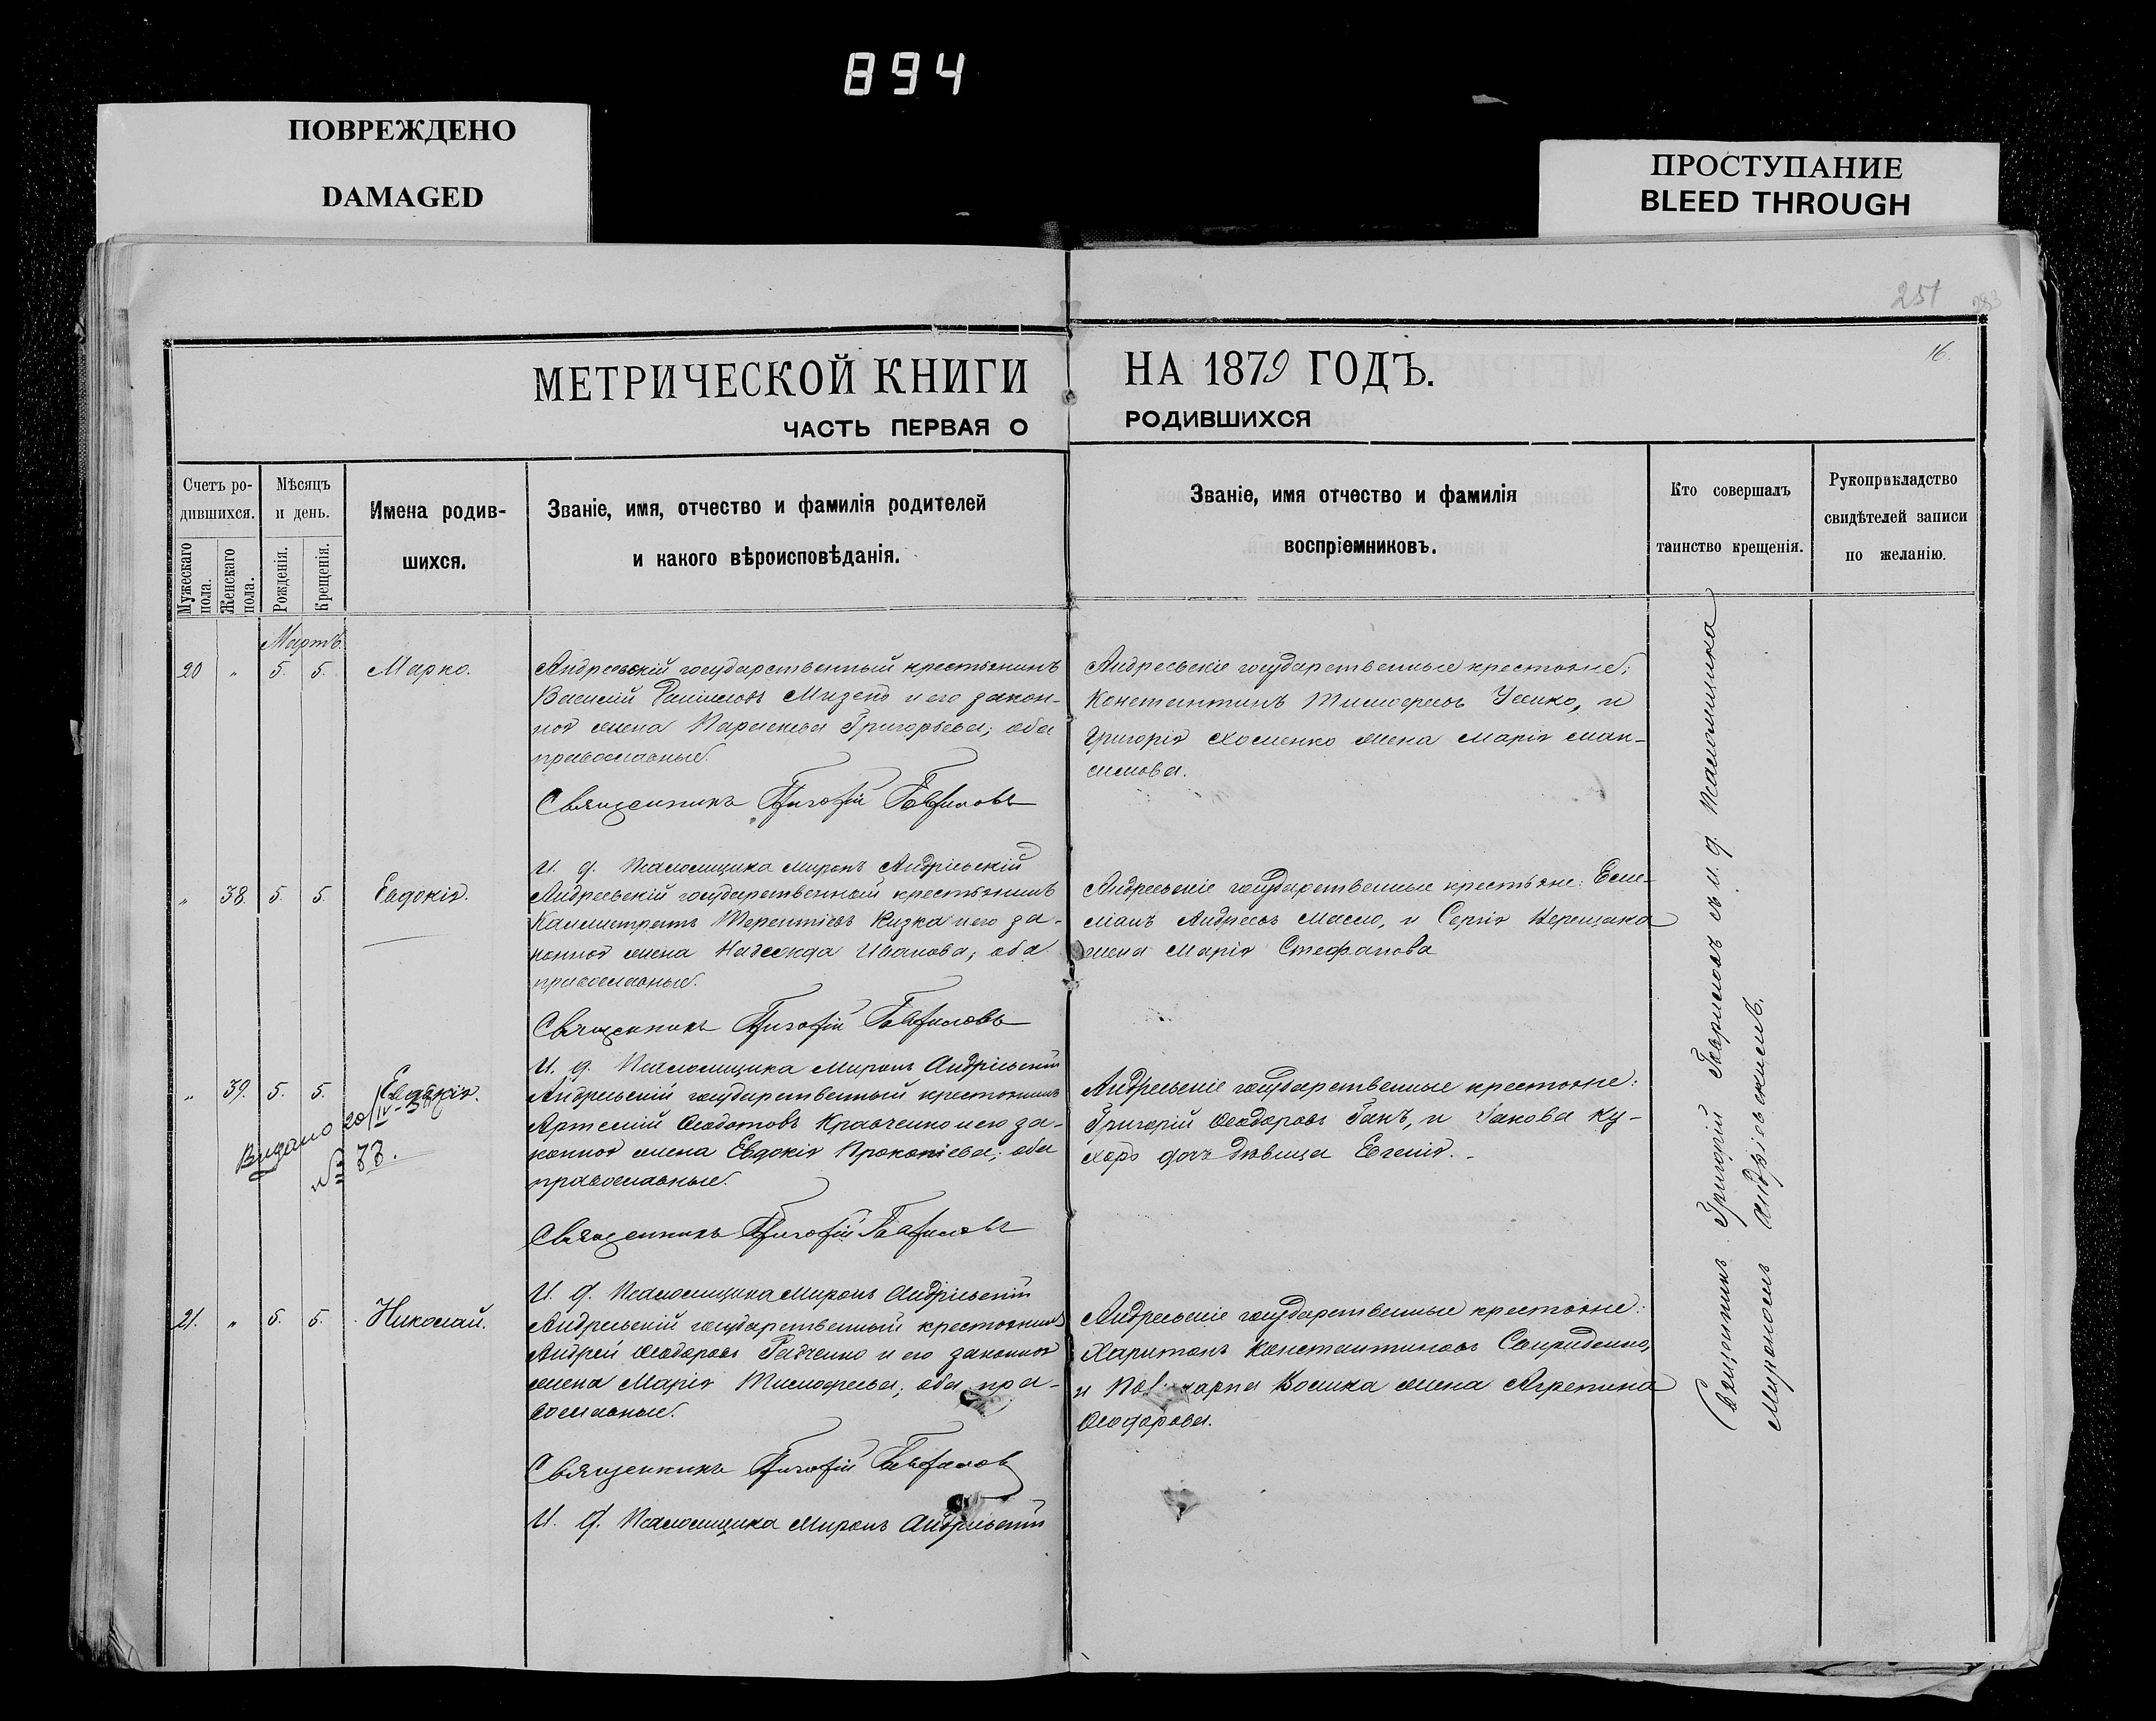 894
ПОВРЕЖДЕНО
DAMAGED
ПРОСТУПАНИЕ
BLEED THROUGH
251
16.
МЕТРИЧЕСКОЙ КНИГИ
НА 1879 ГОДЪ.
ЧАСТЬ ПЕРВАЯ О
РОДИВШИХСЯ
Счетъ ро-
дившихся.
Мужескаго
пола.
Женскаго
пола.
Мѣсяцъ
и день.
Рожденія.
Крещенія.
Имена родив-
шихся.
Званіе, имя, отчество и фамилія родителей
и какого вѣроисповѣданія.
Званіе, имя отчество и фамилія
воспріемниковъ.
Кто совершалъ
таинство крещенія.
Рукоприкладство
свидѣтелей записи
по желанію.
Мартъ.
20 " 5. 5. Марко.
Андреевскій государственный крестьянинъ
Василій Даниловъ и его закон-
ная жена Параскева Григорьева; оба
православные.
Священникъ Григорій Гавриловъ
И. д. Псаломщика Миронъ Андріевскій
Андреевскіе государственные крестьяне:
Константинъ Тимофеевъ Усенко, и
Григорія Хоменко жена Марія Мак-
симова.
" 38. 5. 5. Евдокія.
Андреевскій государственный крестьянинъ
Каллистратъ Терентіевъ Кизка и его за-
конная жена Надежда Иванова; оба
православные.
Священникъ Григорій Гавриловъ
И. д. Псаломщика Миронъ Андріевскій
Андреевскіе государственные крестьяне: Еме-
ліанъ Андреевъ Масло, и Сергія Верещака
жена Марія Стефанова
" 39. 5. 5. Евдокія.
Видано 20/IV-38
№ 33.
Андреевскій государственный крестьянинъ
Артемій Ѳедотовъ Кравченко и его за-
конная жена Евдокія Прокопіева; оба
православные.
Священникъ Григорій Гавриловъ
И. д. Псаломщика Миронъ Андріевскій
Андреевскіе государственные крестьяне:
Григорій Ѳеодоровъ Ганъ, и Іакова Ку-
харь дочь дѣвица Евгенія.
21. " 5. 5. Николай.
Андреевскій государственный крестьянинъ
Андрей Ѳеодоровъ и его законная
жена Марія Тимофеева; оба пра-
вославные.
Священникъ Григорій Гавриловъ
И. д. Псаломщика Миронъ Андріевскій
Андреевскіе государственные крестьяне:
Харитонъ Константиновъ Свириденко,
и Поликарпа жена Агрепина
Ѳеодорова.
Священникъ Григорій Гавриловъ съ и. д Псаломщика
Мирономъ Андріевскимъ.